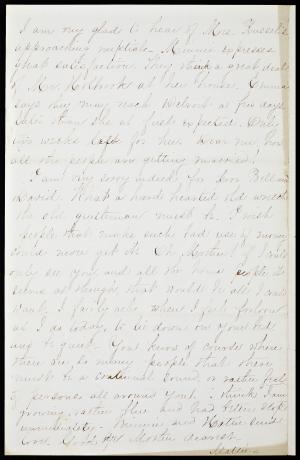 I am very glad to hear of Mrs. Russell's
approaching nuptials. Minnie expresses
great satisfaction. They think a great deal
of Mr. Holbrook at her house. Emma
says they may reach Detroit a few days
later than she at first expected. Only
two weeks left for her. Dear me, how
all the people are getting married!
I am very sorry indeed for
David. What a hard hearted old wretch
the old gentleman must be. I wish
people that make such bad use of money
could never get it. Oh Mother! if I could
only see you and all the home people, it
seems as though, that would be all I could
want. I fairly ache, when I feel forlorn,
as I do today, to lie down on your bed
and be quiet. You know of course where
there are so many people that there
must be a continual sound, or rather feel
of persons all around you. I think I am
growing rather blue and had better stop
immediately. Minnie and Hattie send
love. Good Mother dearest.